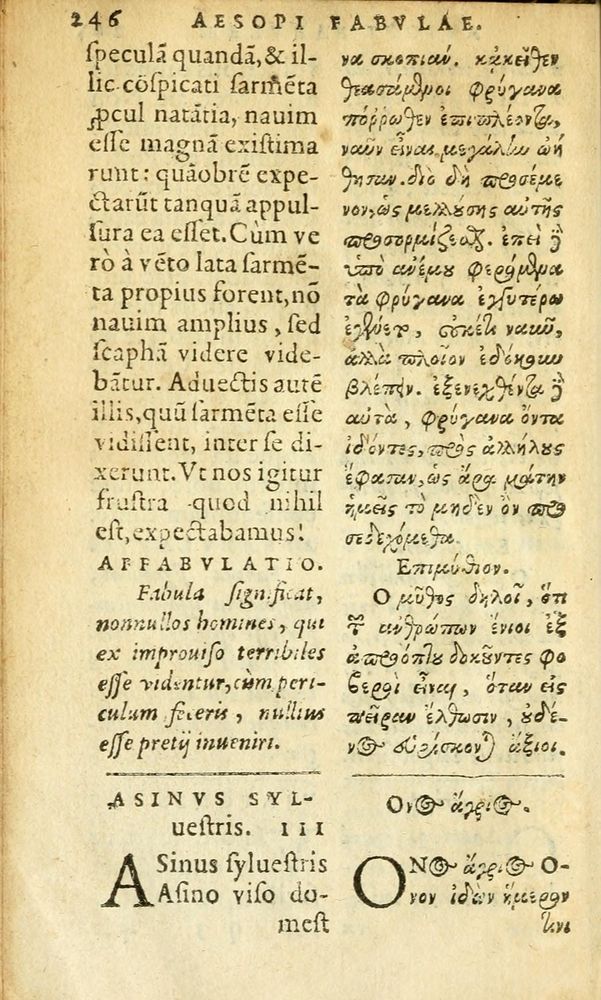 246 AESOPI FABVLAE.
speculā quandā, & il-
lic cōspicati sarmēta
ꝓcul natātia, nauim
esse magnā existima
runt: quāobrē expe-
ctarūt tanquā appul-
sura ea esset. Cùm ve
rò à vēto lata sarmē-
ta propius forent, nō
nauim amplius, sed
scaphā videre vide-
bātur. Aduectis autē
illis, quū sarmēta esse
vidissent, inter se di-
xerunt. Vt nos igitur
frustra quod nihil
est, expectabamus!
AFFABVLATIO.
Fabula significat,
nonnullos homines, qui
ex improuiso terribiles
esse videntur, cùm peri-
culum feceris, nullius
esse pretij inueniri.
ASINVS SYL-
uestris. III
ASinus syluestris
Asino viso do-
mest
να σκοπιὰν. κἀκεῖθεν
θεασάμενοι φρύγανα
πόῤῥωθεν ἐπιπλέοντα,
ναῦν εἶναι μεγάλην ᾠή
θησαν. διὸ δὴ προσέμε
νον, ὡς μελλούσης αὐτῆς
προσορμίζεσθαι. ἐπεὶ δὲ
ὑπὸ ἀνέμου φερόμενα
τὰ φρύγανα ἐγγυτέρω
ἐγένετο, οὐκέτι ναῦν,
ἀλλὰ πλοῖον ἐδόκουν
βλέπειν. ἐξενεχθέντα δὲ
αὐτὰ, φρύγανα ὄντα
ἰδόντες, πρὸς ἀλλήλους
ἔφασαν, ὡς ἄρα μάτην
ἡμεῖς τὸ μηδὲν ὂν προσ
εδεχόμεθα.
Ἐπιμύθιον.
Ὁ μῦθος δηλοῖ, ὅτι
τῶν ἀνθρώπων ἔνιοι ἐξ
ἀπροόπτου δοκοῦντες φο
βεροὶ εἶναι, ὅταν εἰς
πεῖραν ἔλθωσιν, οὐδέ-
νος εὑρίσκονται ἄξιοι.
Ονος ἄγριος.
ΟΝος ἄγριος Ο-
νον ἰδὼν ἥμερον